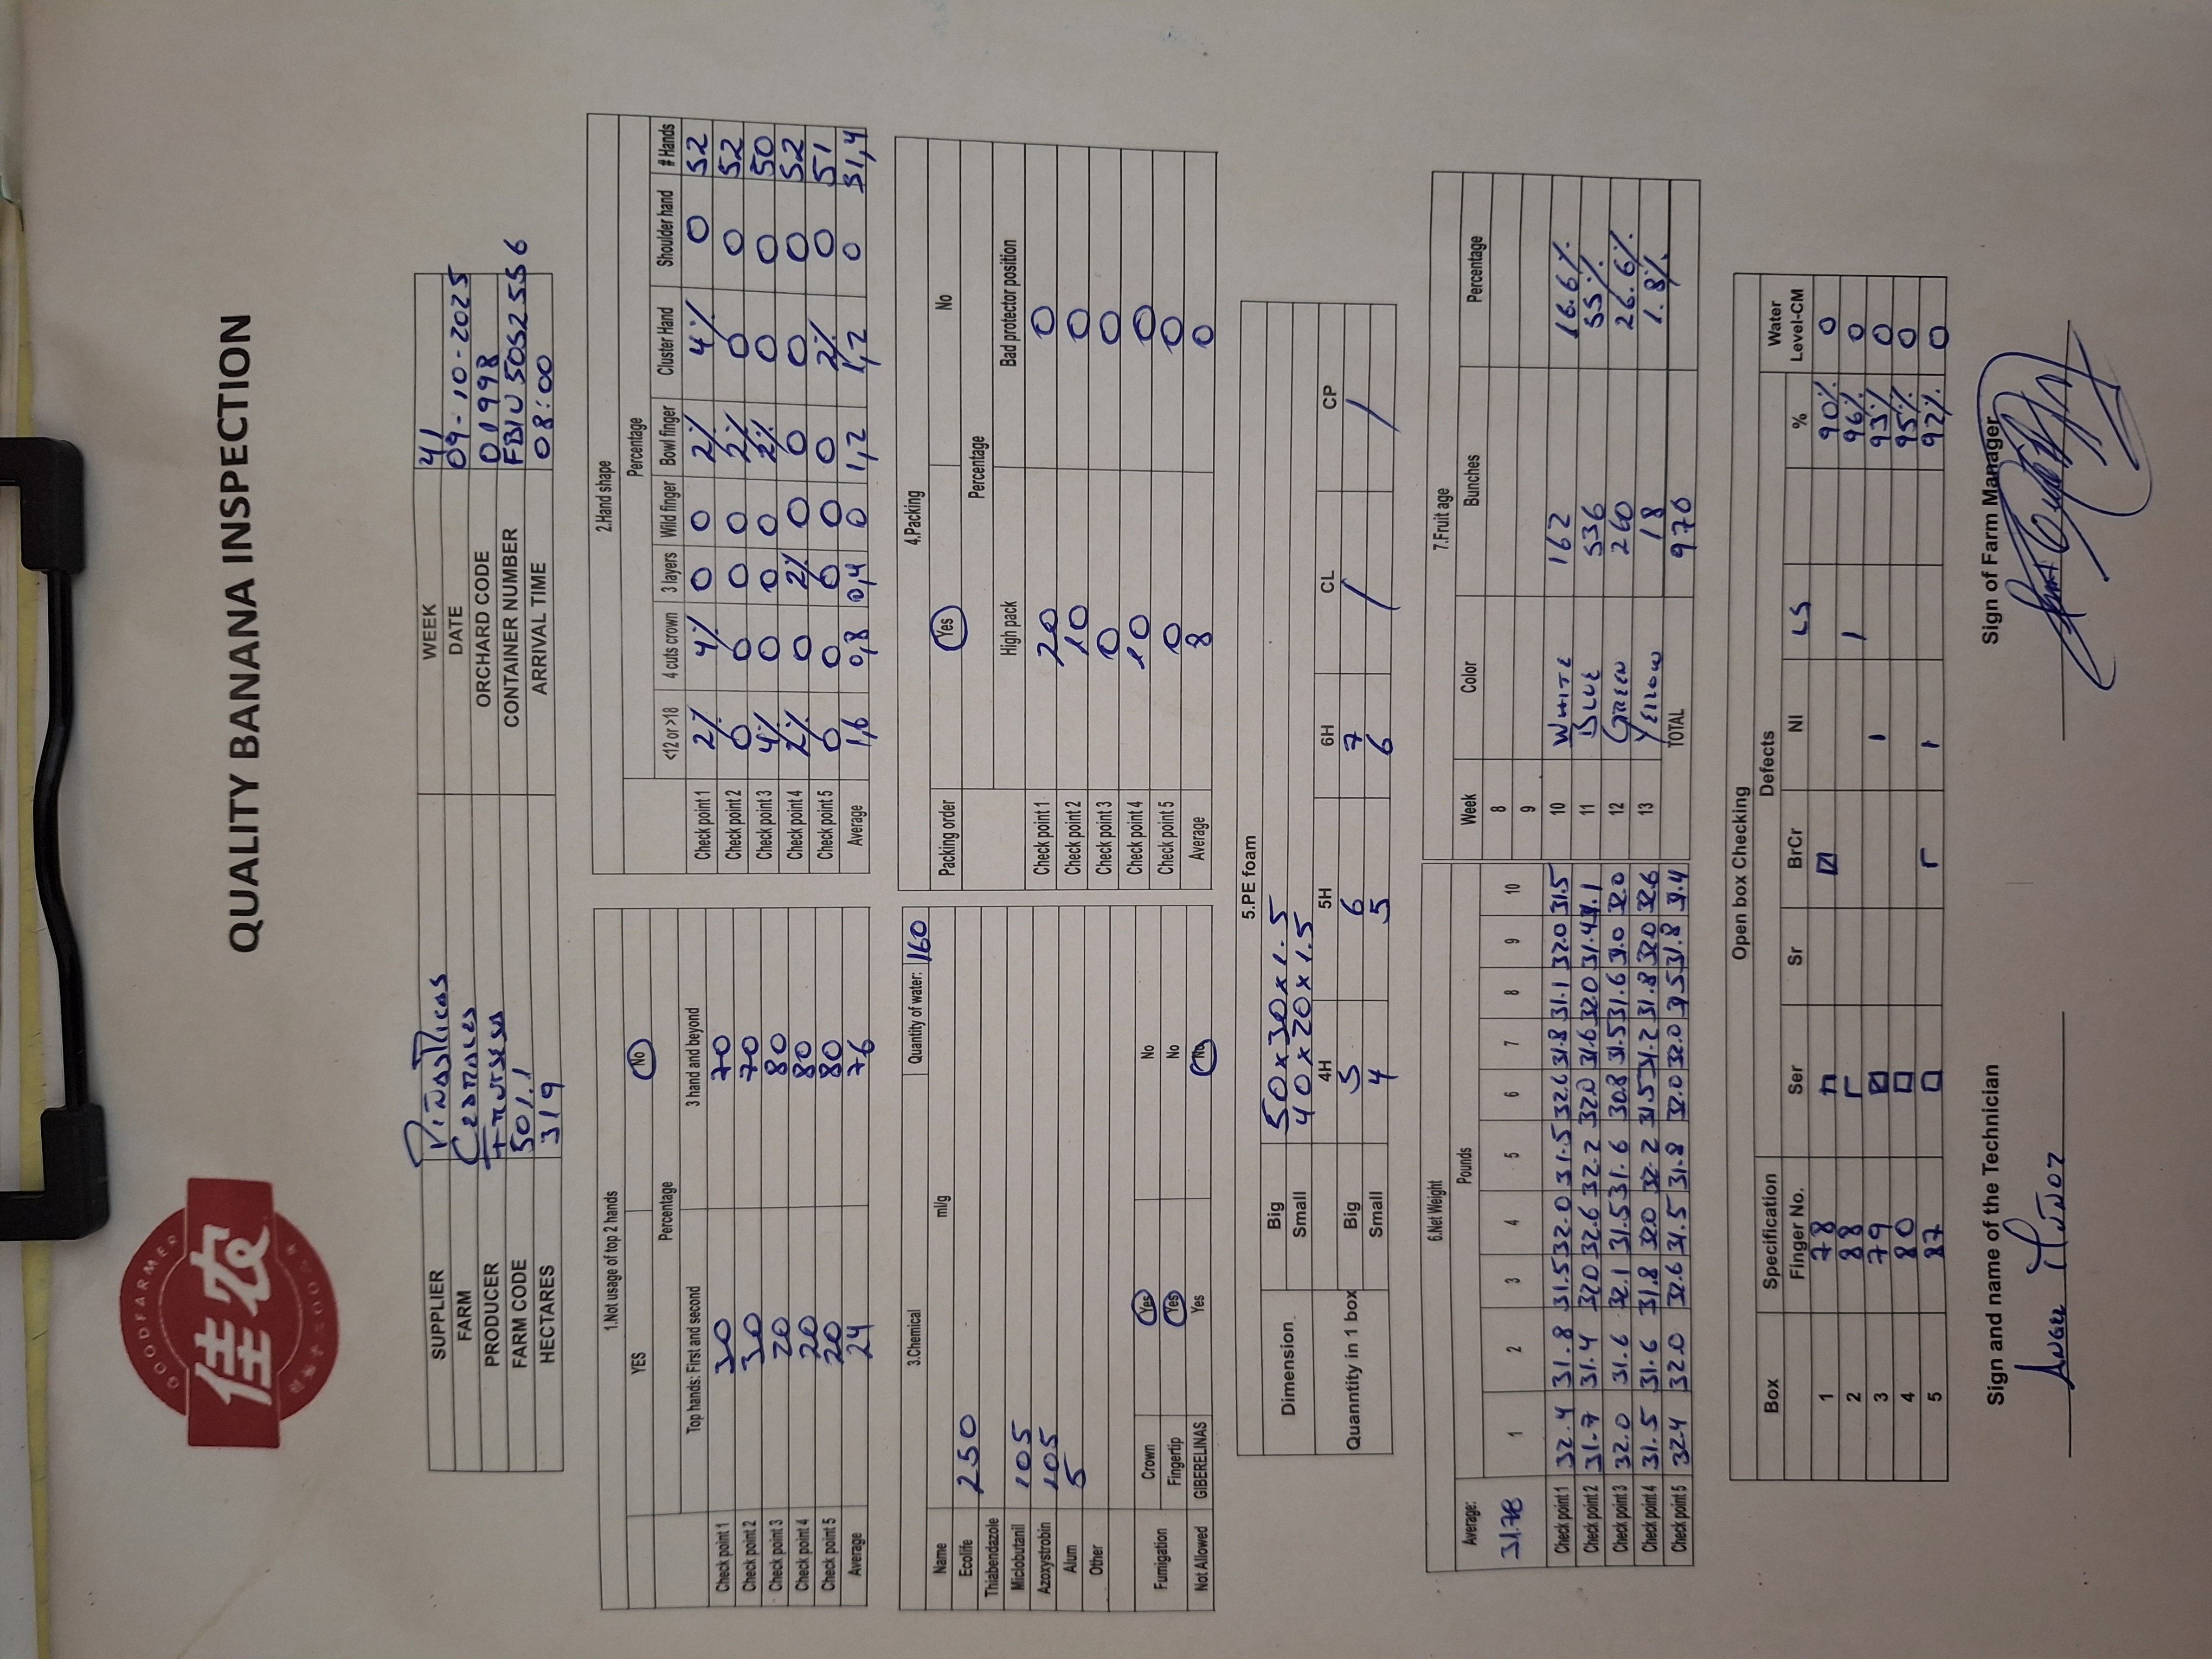 GOODFARMER
佳农
QUALITY BANANA INSPECTION
SUPPLIER PiñasRicas WEEK 41
FARM DATE 09-10-2025
PRODUCER FRUTSESA ORCHARD CODE 01998
FARM CODE 501.1 CONTAINER NUMBER FBIU 5052556
HECTARES 319 ARRIVAL TIME 08:00
1.Not usage of top 2 hands
YES No
Percentage
Top hands: First and second 3 hand and beyond
Check point 1 30 70
Check point 2 30 70
Check point 3 20 80
Check point 4 20 80
Check point 5 20 80
Average 24 76
2.Hand shape
Percentage
<12 or >18 4 cuts crown 3 layers Wild finger Bowl finger Cluster Hand Shoulder hand # Hands
Check point 1 2% 4% 0 0 2% 4% 0 52
Check point 2 0 0 0 0 2% 0 0 52
Check point 3 4% 0 0 0 2% 0 0 50
Check point 4 2% 0 2% 0 0 0 0 52
Check point 5 0 0 0 0 0 2% 0 51
Average 1,6 0,8 0,4 0 1,2 1,2 0 51,4
3.Chemical Quantity of water: 160
Name ml/g
Ecolife 250
Thiabendazole
Miclobutanil 105
Azoxystrobin 105
Alum 5
Other
Fumigation Crown Yes No
Fingertip Yes No
Not Allowed GIBERELINAS Yes No
4.Packing
Packing order Yes No
Percentage
High pack Bad protector position
Check point 1 20 0
Check point 2 10 0
Check point 3 0 0
Check point 4 10 0
Check point 5 0 0
Average 8 0
5.PE foam
Dimension Big 50x30x1.5
Small 40x20x1.5
4H 5H 6H CL CP
Quanntity in 1 box Big 5 6 7 /  /
Small 4 5 6
6.Net Weight
Average: Pounds
31.78 1 2 3 4 5 6 7 8 9 10
Check point 1 32.4 31.8 31.5 32.0 31.5 32.6 31.8 31.1 32.0 31.5
Check point 2 31.7 31.4 32.0 32.6 32.2 32.0 31.6 32.0 31.4 31.1
Check point 3 32.0 31.6 32.1 31.5 31.6 30.8 31.5 31.6 31.0 32.0
Check point 4 31.5 31.6 31.8 32.0 32.2 31.5 31.2 31.8 32.0 32.6
Check point 5 32.4 32.0 32.6 31.5 31.8 32.0 32.0 31.5 31.8 31.4
7.Fruit age
Week Color Bunches Percentage
8
9
10 WHITE 162 16.6%
11 BLUE 536 55%
12 GREEN 260 26.6%
13 YELLOW 18 1.8%
TOTAL 976
Open box Checking
Box Specification Defects Water
Finger No. Ser Sr BrCr NI LS % Level-CM
1 78 90% 0
2 88 96% 0
3 79 93% 0
4 80 95% 0
5 87 92% 0
Sign and name of the Technician Sign of Farm Manager
ANGEL MUÑOZ